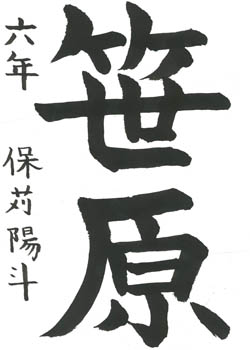 笹原
六年 保苅陽斗